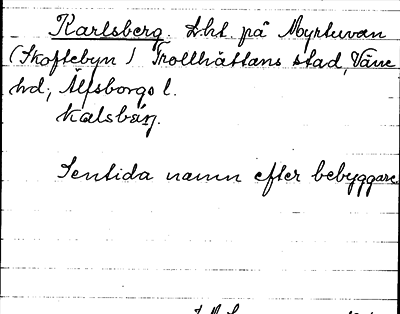 Karlsberg. Lht. på Myrtuvan
(Skoftebyn) Trollhättans stad, Väne
hd, Älfsborgs l.
Kalsbärj.
Sentida namn efter bebyggare.